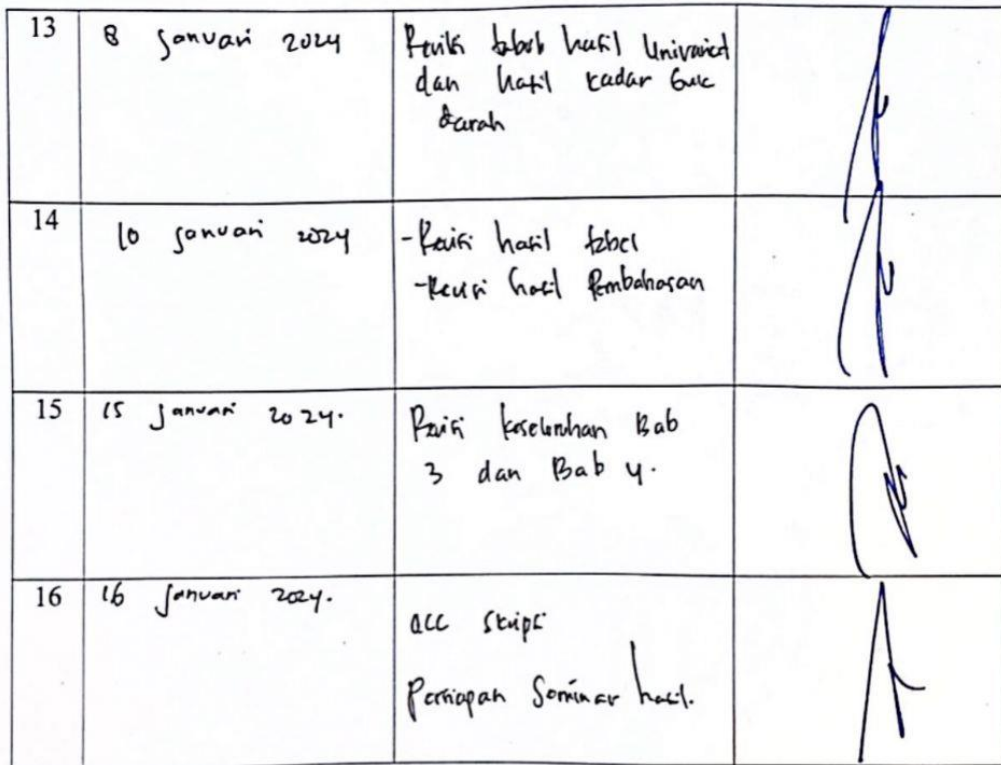 13
8 Januari 2024
Revisi tabel hasil Univariat
dan hasil kadar Guc
darah
14
10 Januari 2024
-Revisi hasil tabel
-Revisi hasil Pembahasan
15
15 Januari 2024.
Revisi keseluruhan Bab
3 dan Bab 4.
16
16 Januari 2024.
acc skripsi
Persiapan Seminar hasil.